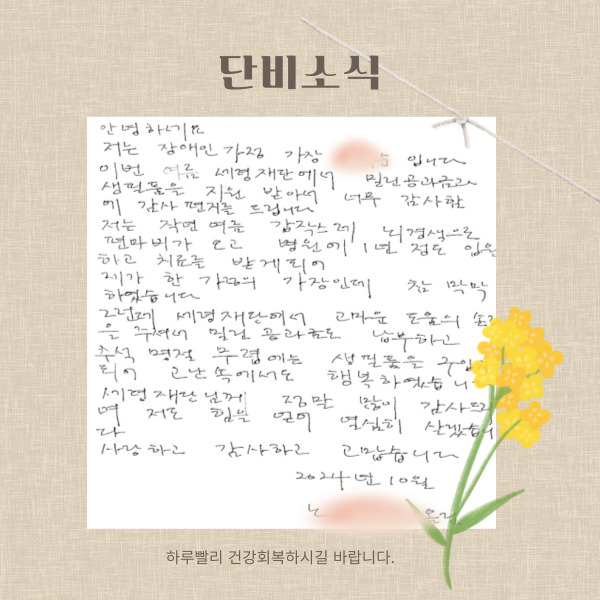 단비소식
안녕하세요
저는 장애인 가정 가장 입니다
이번 여름 세령재단에서 밀린공과금과
생필품을 지원 받아서 너무 감사함
에 감사 편지를 드립니다
저는 작년 여름 갑작스레 뇌경색으로
편마비가 오고 병원에 1년 정도 입원
하고 치료를 받게되어
제가 한 가정의 가장인데 참 막막
하였습니다
그런데 세령재단에서 고마운 도움의 손길
을 주셔서 밀린 공과금도 납부하고
추석 명절 무렵에는 생필품을 구입
되어 고난속에서도 행복하였습니
세령재단님께 정말 많이 감사드리
며 저도 힘을 얻어 열심히 살겠습니
다
사랑하고 감사하고 고맙습니다
2024년 10월
하루빨리 건강회복하시길 바랍니다.